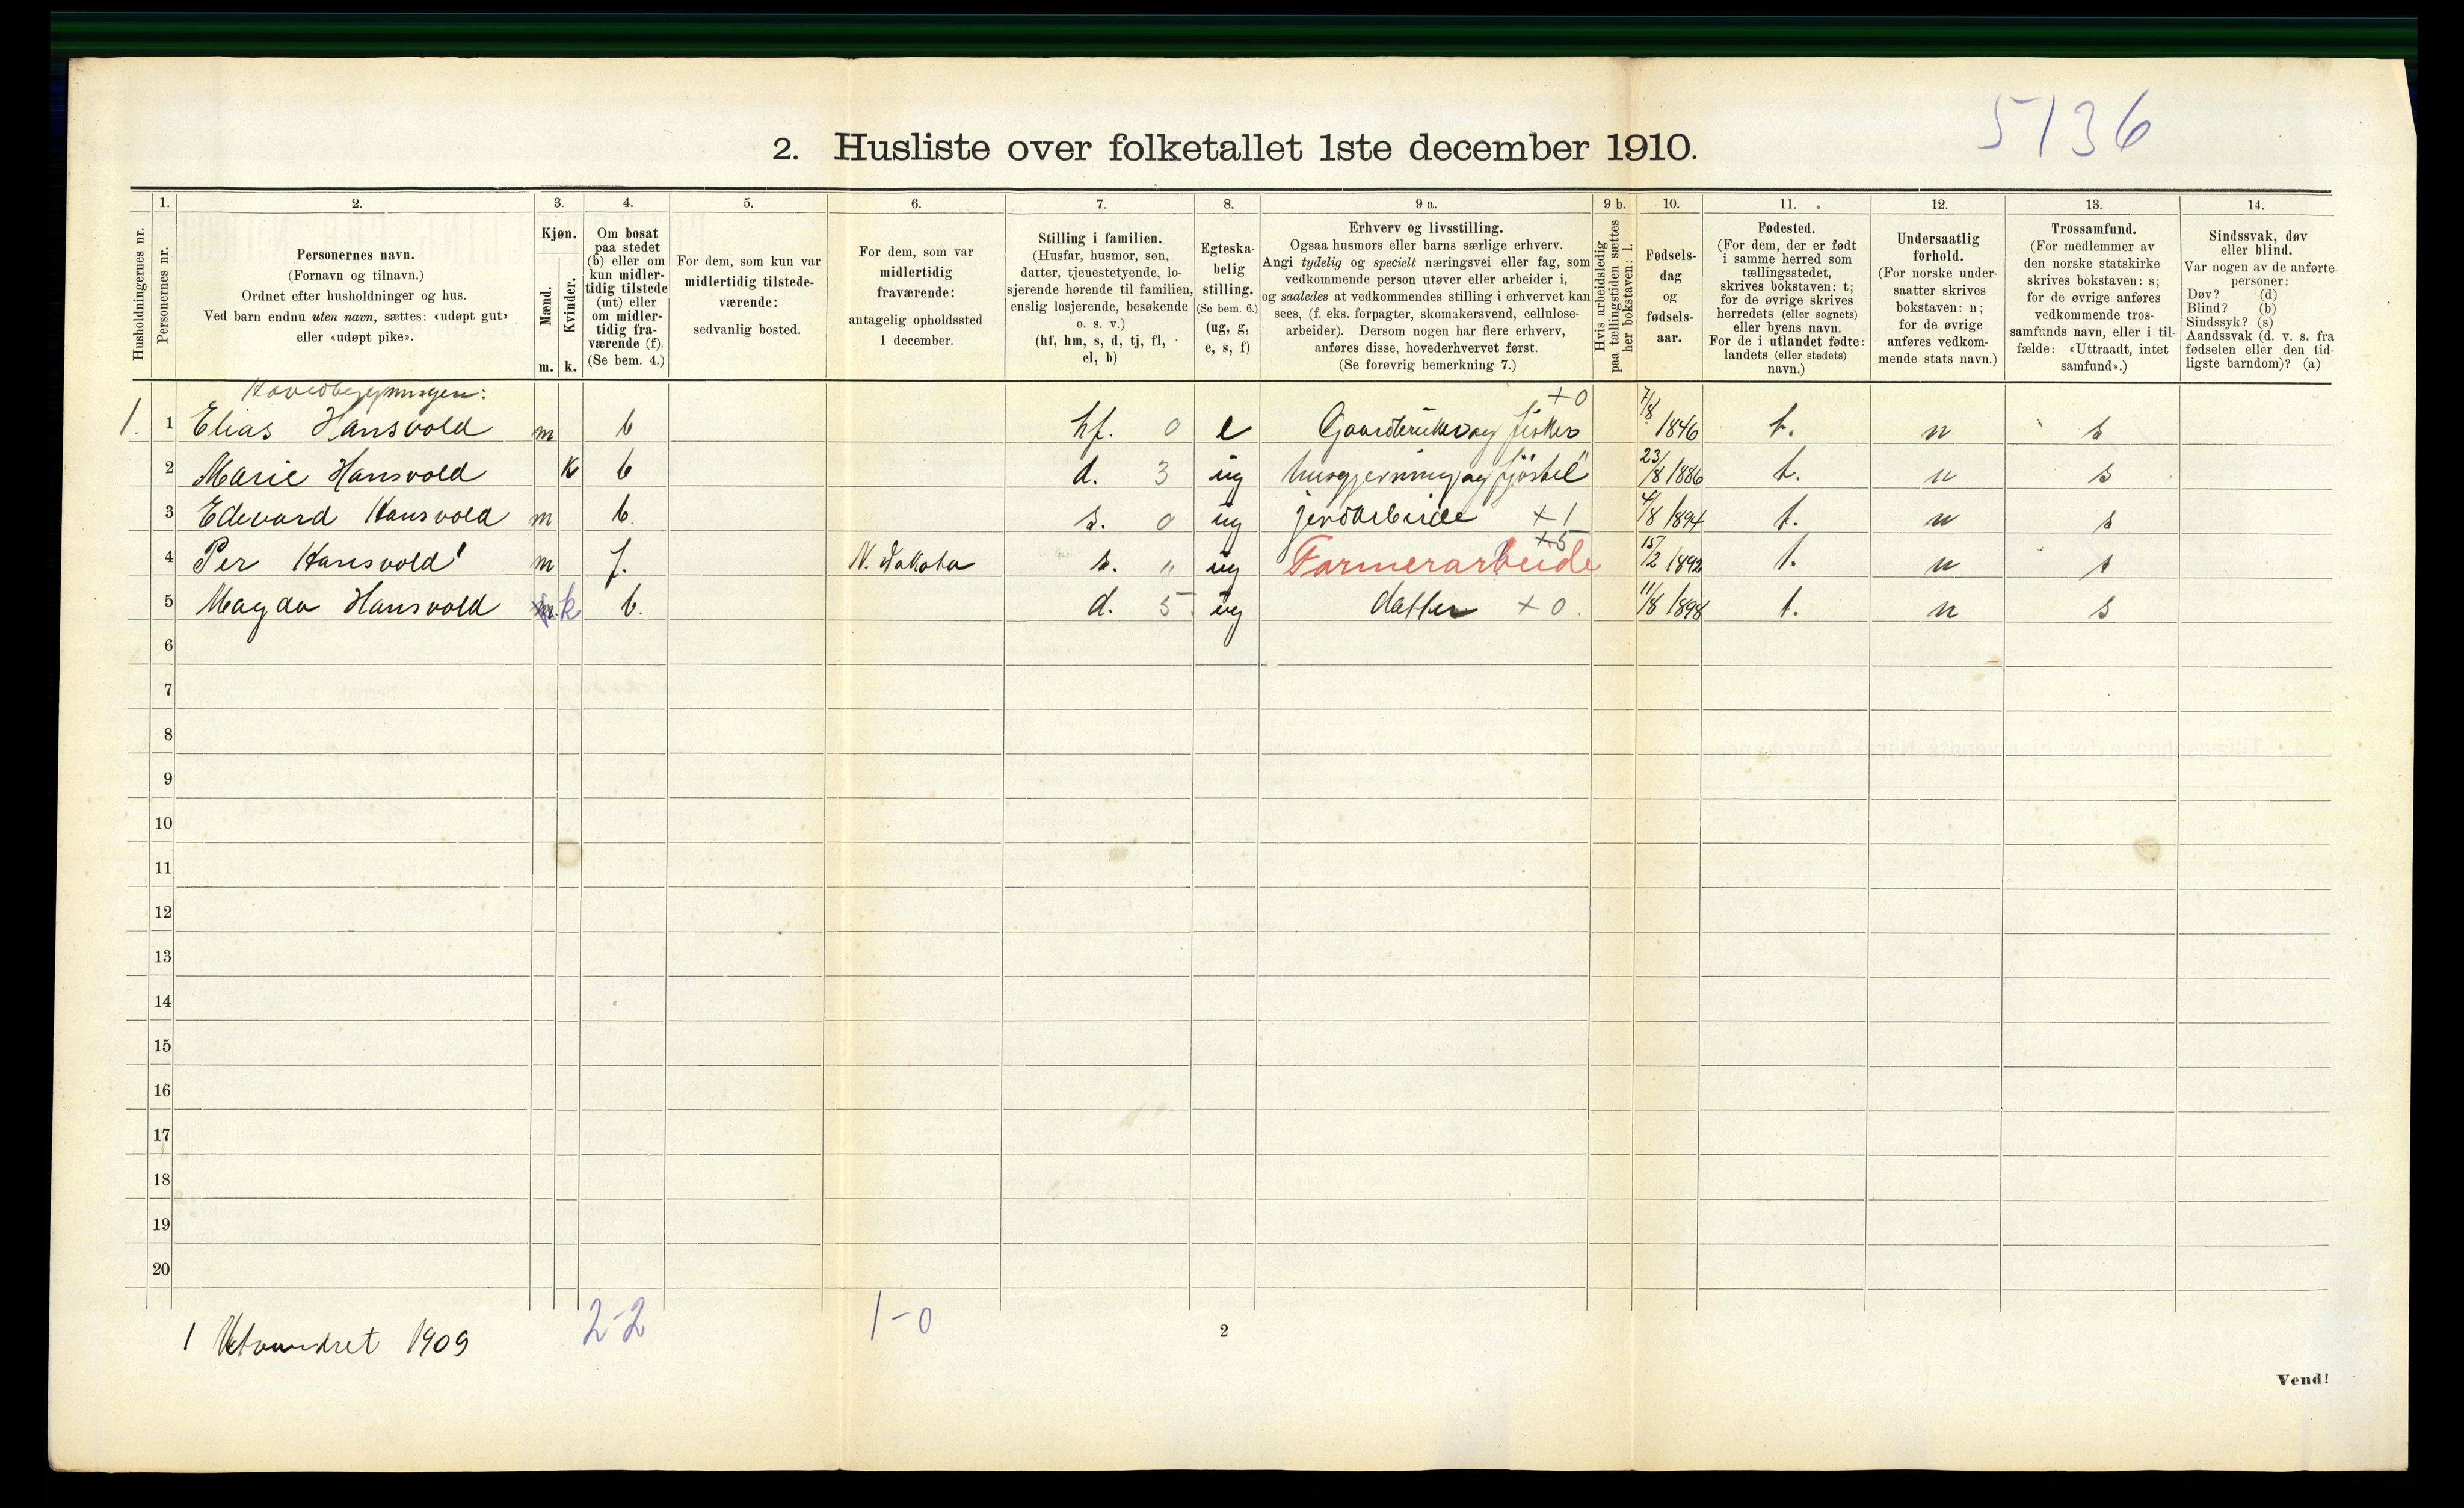 5136
2. Husliste over folketallet 1ste december 1910.
Husholdningernes nr.
1.
Personernes nr.
2.
Personernes navn.
(Fornavn og tilnavn.)
Ordnet efter husholdninger og hus.
Ved barn endnu uten navn, sættes: «udøpt gut»
eller «udøpt pike».
3.
Kjøn.
Mænd.
Kvinder.
m. k.
4.
Om bosat
paa stedet
(b) eller om
kun midler-
tidig tilstede
(mt) eller
om midler-
tidig fra-
værende (f).
(Se bem. 4.)
5.
For dem, som kun var
midlertidig tilstede-
værende:
sedvanlig bosted.
6.
For dem, som var
midlertidig
fraværende:
antagelig opholdssted
1 december.
7.
Stilling i familien.
(Husfar, husmor, søn,
datter, tjenestetyende, lo-
sjerende hørende til familien,
enslig losjerende, besøkende
o. s. v.)
(hf, hm, s, d, tj, fl,
el, b)
8.
Egteska-
belig
stilling.
(Se bem. 6.)
(ug, g,
e, s, f)
9 a.
Erhverv og livsstilling.
Ogsaa husmors eller barns særlige erhverv.
Angi tydelig og specielt næringsvei eller fag, som
vedkommende person utøver eller arbeider i,
og saaledes at vedkommendes stilling i erhvervet kan
sees, (f. eks. forpagter, skomakersvend, cellulose-
arbeider). Dersom nogen har flere erhverv,
anføres disse, hovederhvervet først.
(Se forøvrig bemerkning 7.)
9 b.
Hvis arbeidsledig
paa tællingstiden sættes
her bokstaven: l.
10.
Fødsels-
dag
og
fødsels-
aar.
11.
Fødested.
(For dem, der er født
i samme herred som
tællingsstedet,
skrives bokstaven: t;
for de øvrige skrives
herredets (eller sognets)
eller byens navn.
For de i utlandet fødte:
landets (eller stedets)
navn.)
12.
Undersaatlig
forhold.
(For norske under-
saatter skrives
bokstaven: n;
for de øvrige
anføres vedkom-
mende stats navn.)
13.
Trossamfund.
(For medlemmer av
den norske statskirke
skrives bokstaven: s;
for de øvrige anføres
vedkommende tros-
samfunds navn, eller i til-
fælde: «Uttraadt, intet
samfund».)
14.
Sindssvak, døv
eller blind.
Var nogen av de anførte
personer:
Døv? (d)
Blind? (b)
Sindssyk? (s)
Aandssvak (d. v. s. fra
fødselen eller den tid-
ligste barndom)? (a)
Hovedbygningen:
1. 1 Elias Hansvold m b hf. 0 e Gaardbruker og fisker +0 7/8 1846 t. n s
2 Marie Hansvold k b d. 3 ug husgjerning og fjöstel 23/8 1886 t. n s
3 Edevard Hansvold m b. s. 0 ug jordarbeide +1 4/8 1894 t. n s
4 Per Hansvold¹ m f. N. Dakota s. " ug Farmerarbeide +5 15/2 1892 t. n s
5 Magda Hansvold m. k b. d. 5. ug datter +0. 11/8 1898 t. n s
6
7
8
9
10
11
12
13
14
15
16
17
18
19
20
2-2
1-0
1 Utvandret 1909
2
Vend!